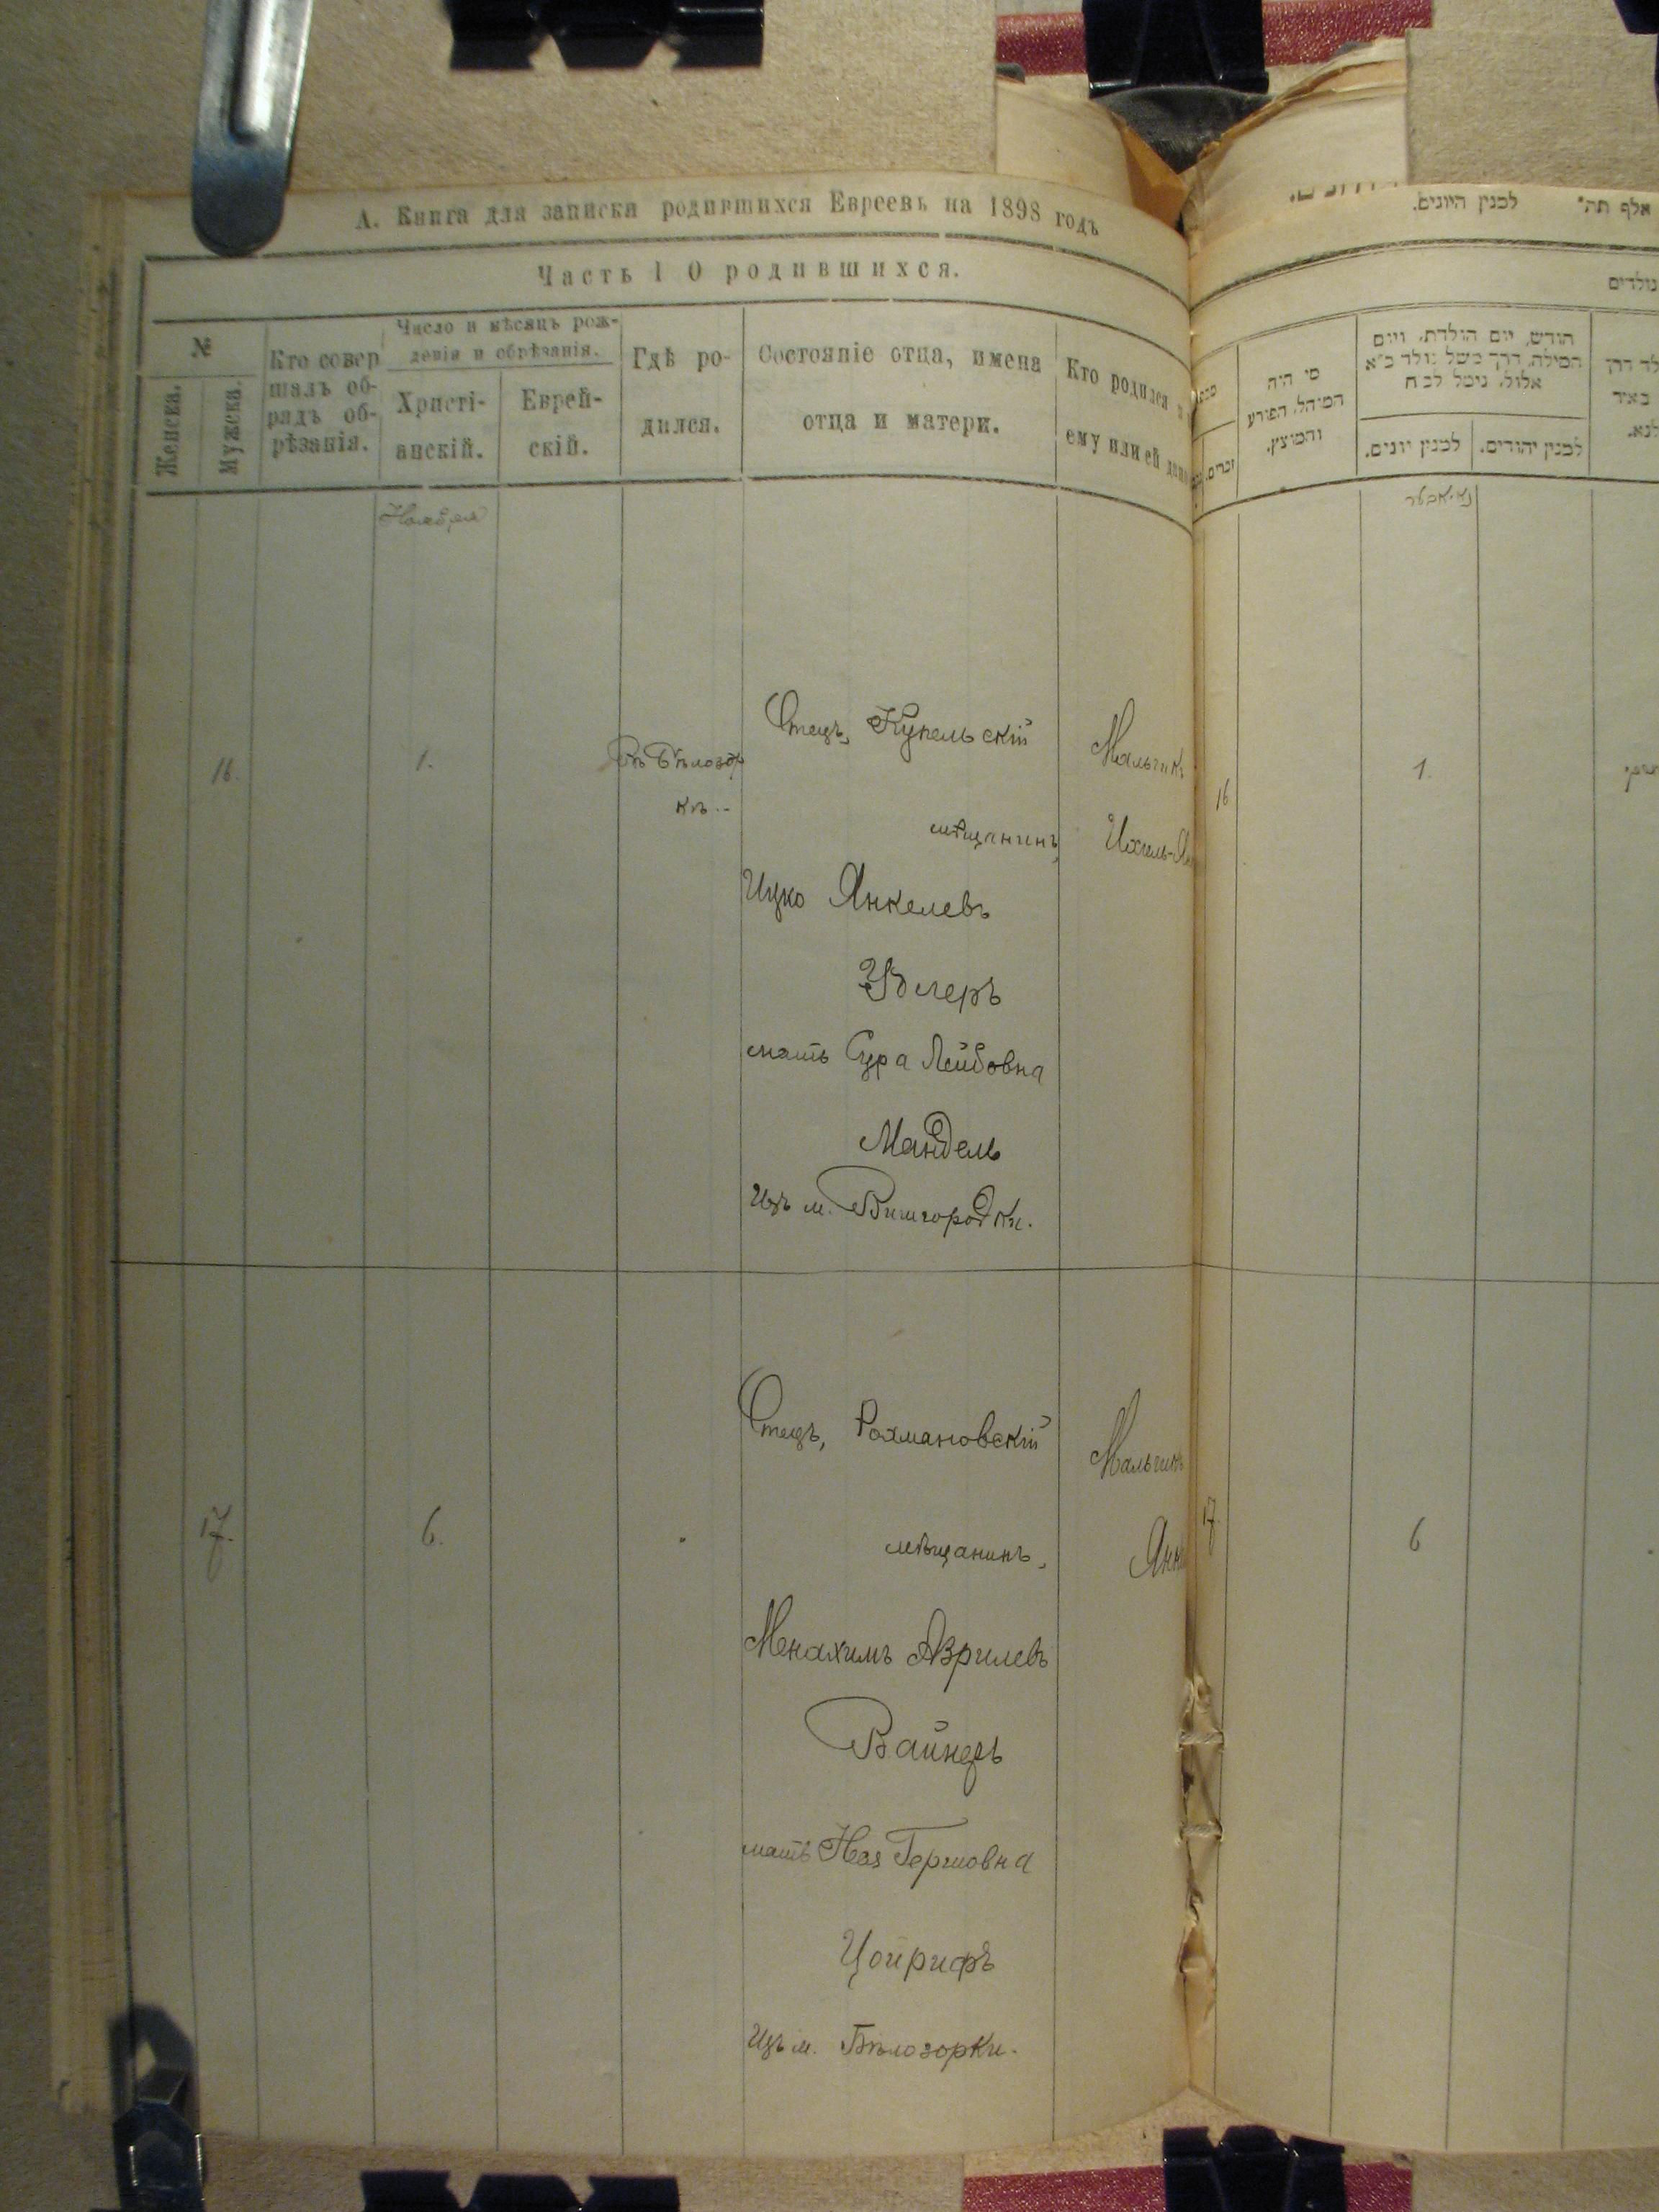 А. Книга для записки родившихся Евреевъ на 1898 годъ
Часть I О родившихся.
№
Женска.
Мужска.
Кто совер
шалъ об-
рядъ об-
рѣзанія.
Число и мѣсяцъ рож-
денія и обрѣзанія.
Христі-
анскій.
Еврей-
скій.
Гдѣ ро-
дился.
Состояніе отца, имена
отца и матери.
Кто родился и
ему или ей дано
Ноября
16.
1.
Въ Бѣлозор
кѣ
Отецъ, Купельскій
мѣщанинъ,
Ицко Янкелевъ
мать Сура Лейбовна
Мандель
Изъ м. Вишгородки.
Мальчикъ
Ихиль-
17.
6.
Отецъ, Рохмановскій
мѣщанинъ,
Менахимъ Азрилевъ
Вайнеръ
мать Ноя Гершовна
Цойрифъ
Изъ м. Бѣлозорки.
Мальчикъ
Янк
אלף תר״
למנין היונים.
נולדים
מי היה
המוהל, הפורע
והמוצץ.
חודש, יום הולדת, ויום
המילה, דרך משל נולד כ״א
אלול, נימל לכ״ח
למנין יונים.
למנין יהודים.
זכרים.
נאיאבער
16
1.
17.
6